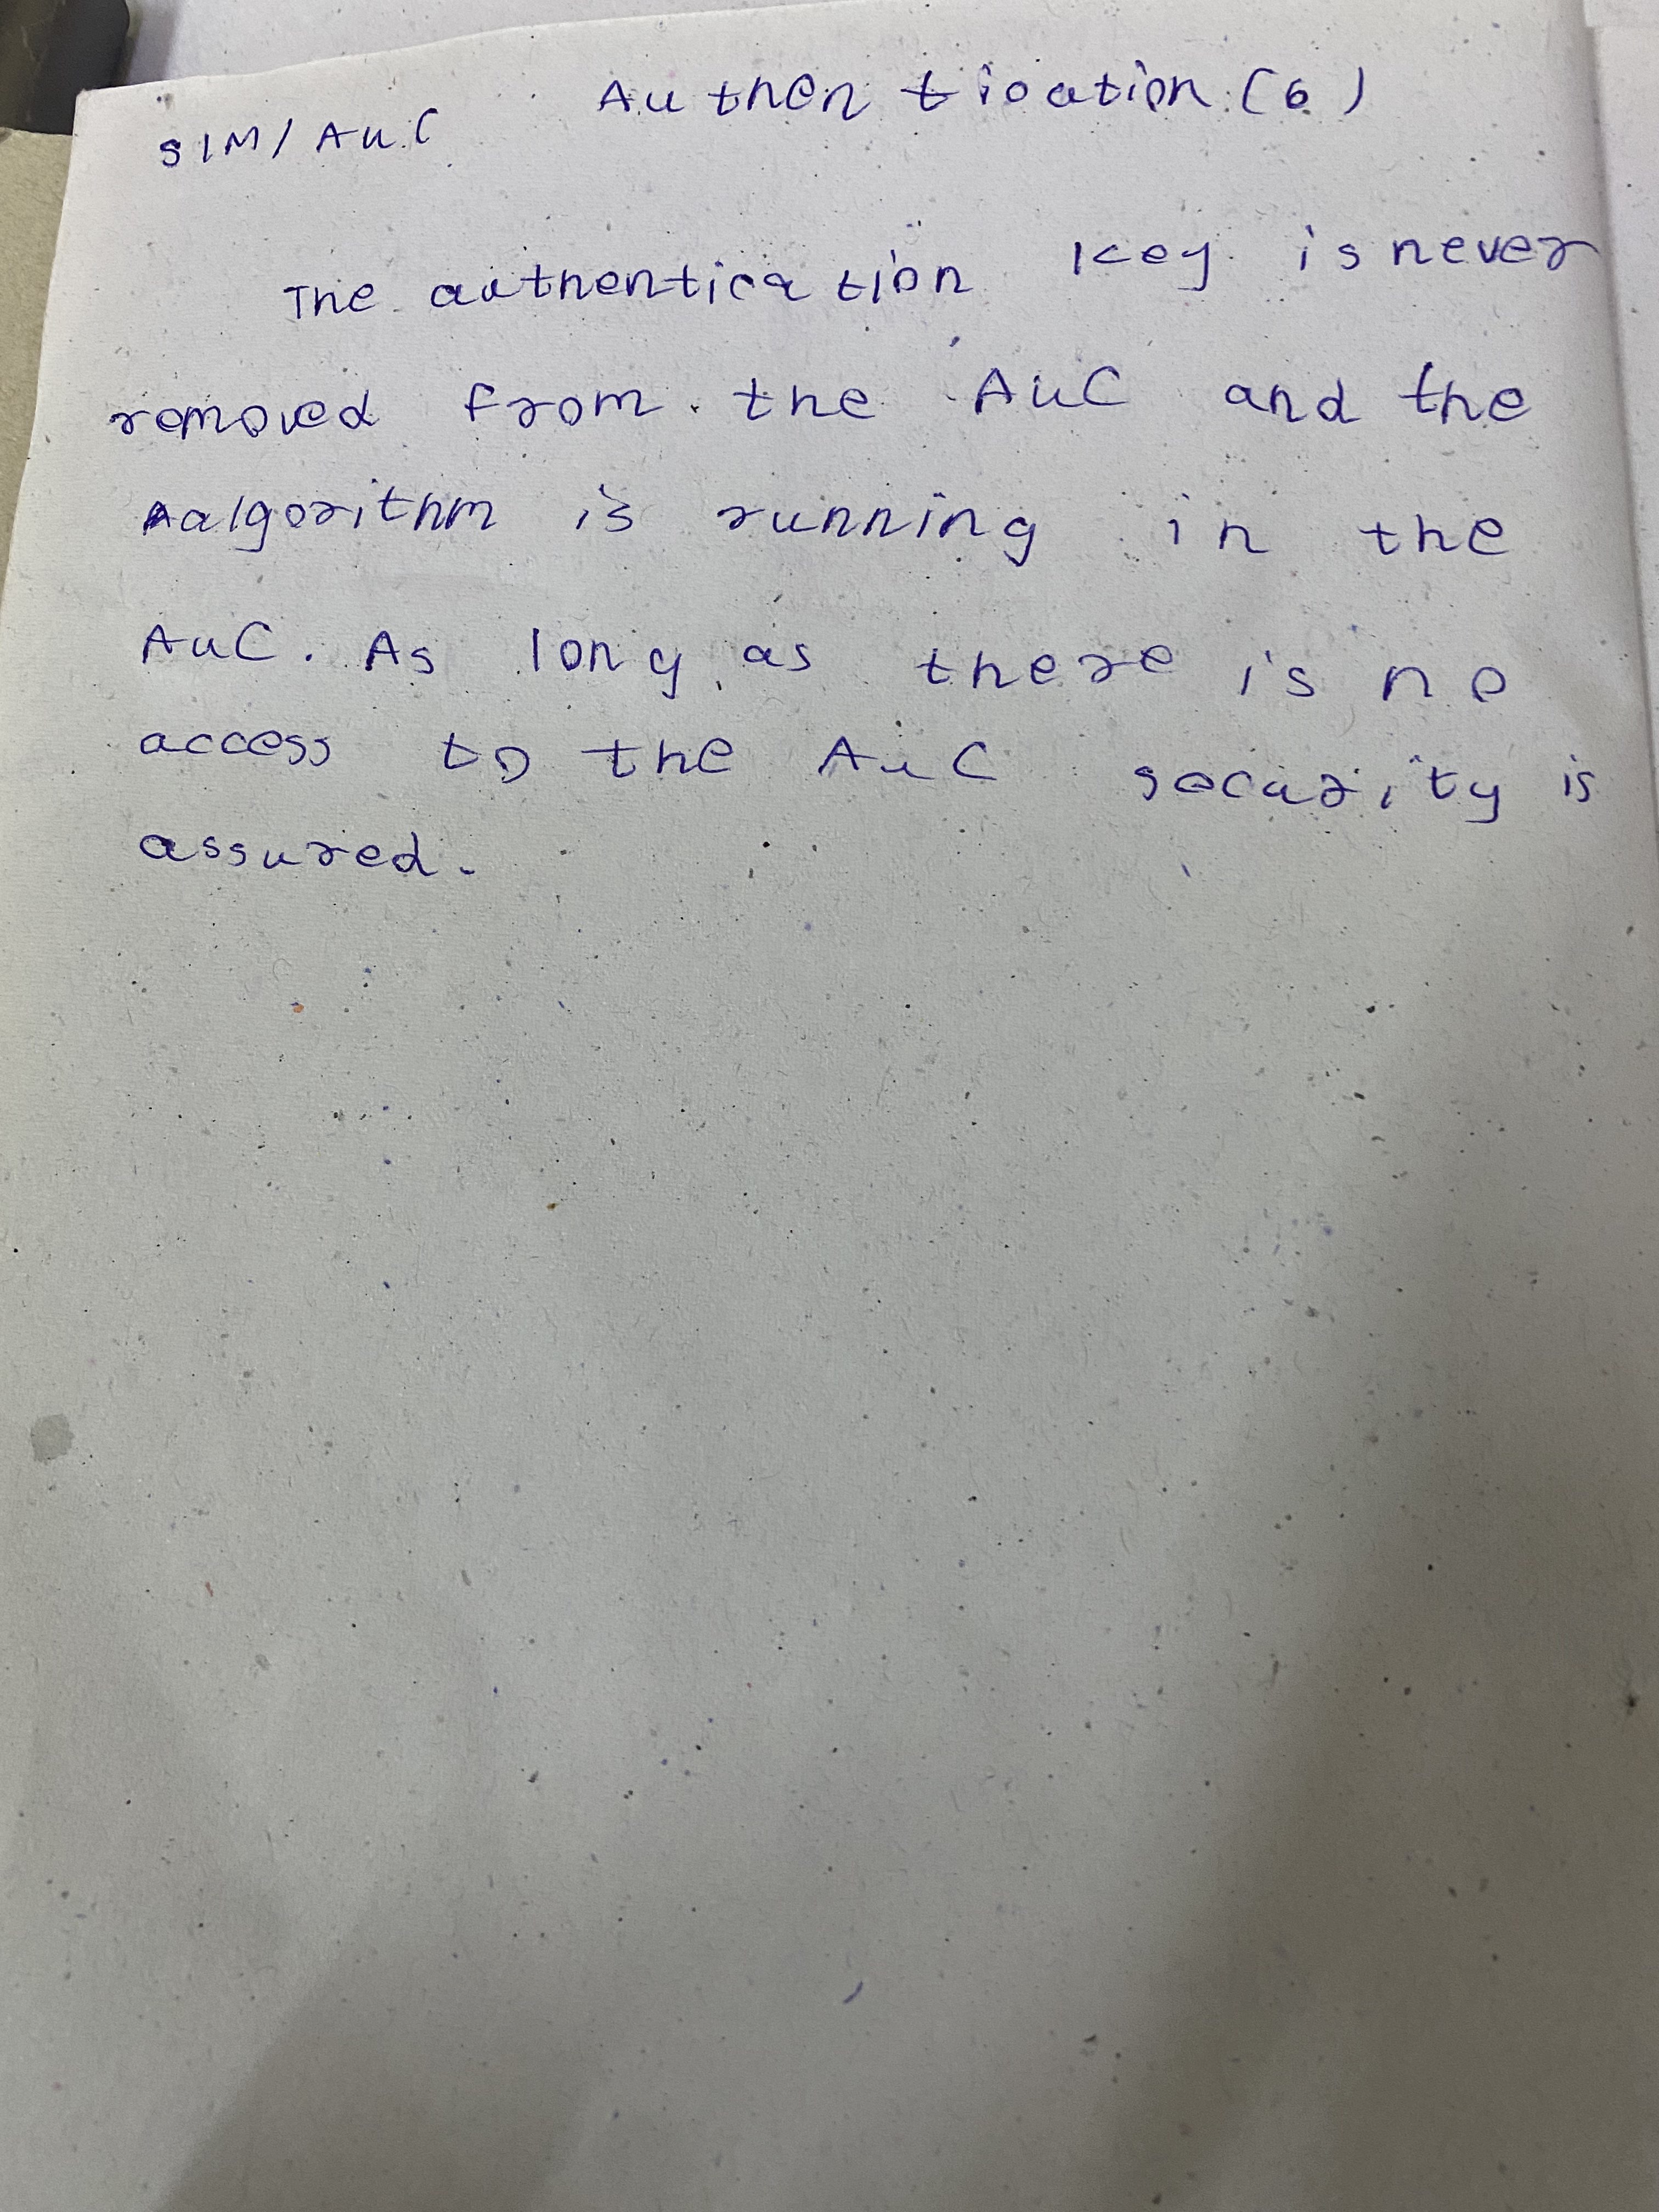 Authentication (6)
SIM/AuC
The authentication key is never
removed from the AuC and the
algorithm is running in the
AuC. As long as there is no
access to the AuC security is
assured.